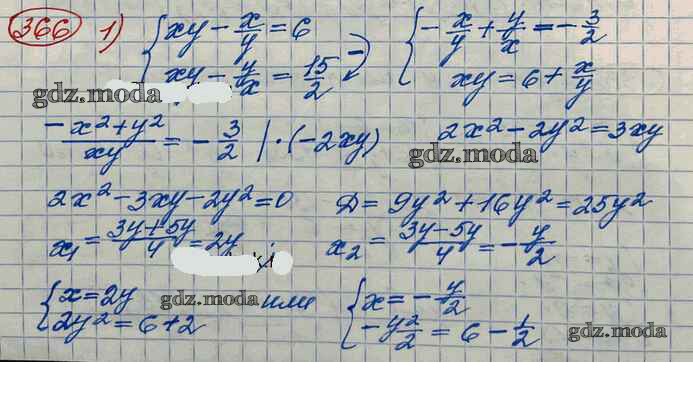 366 1) { xy - x/y = 6 { -x/y + y/x = -3/2
xy - y/x = 15/2 xy = 6 + x/y
gdz.moda
(-x² + y²)/xy = -3/2 | · (-2xy) 2x² - 2y² = 3xy
gdz.moda
2x² - 3xy - 2y² = 0 D = 9y² + 16y² = 25y²
x₁ = (3y + 5y)/4 = 2y x₂ = (3y - 5y)/4 = -y/2
{ x = 2y gdz.moda или { x = -y/2
2y² = 6 + 2 -y²/2 = 6 - 1/2 gdz.moda